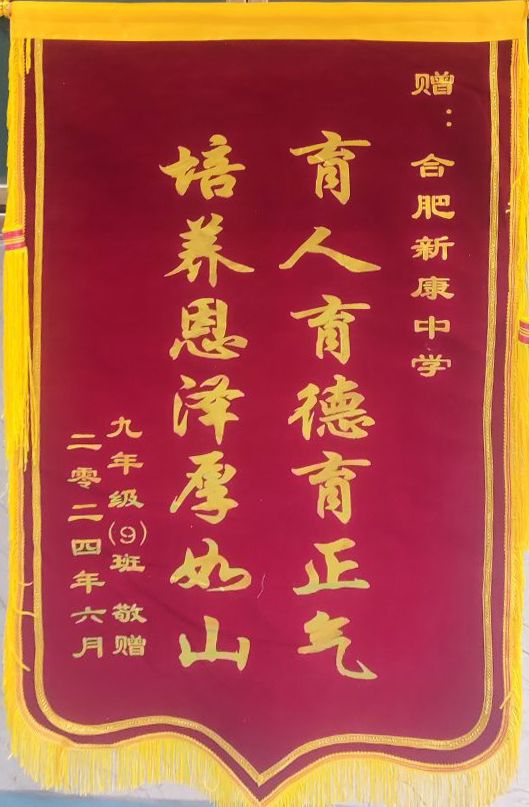 赠：合肥新康中学
育人育德育正气
培养恩泽厚如山
九年级(9)班 敬赠
二零二四年六月